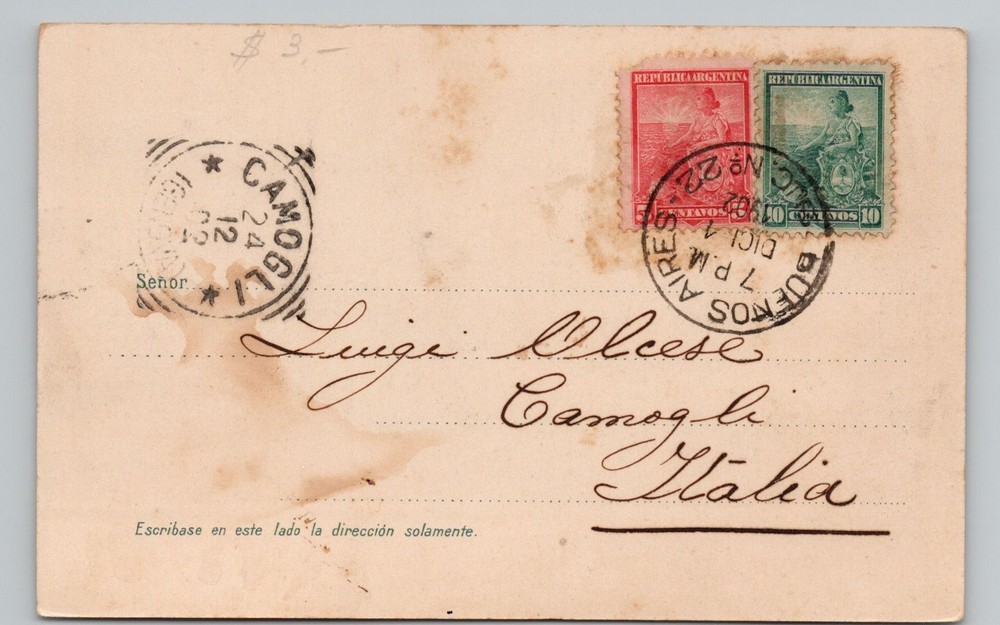 $ 3.-
REPÚBLICA ARGENTINA
5 CENTAVOS 5
REPÚBLICA ARGENTINA
10 CENTAVOS 10
CAMOGLI
24
12
02
BUENOS AIRES - 22
SUC. Nº
1902
DICI. 1
7 P.M.
Señor
Luigi Olcese
Camogli
Italia
Escribase en este lado la dirección solamente.